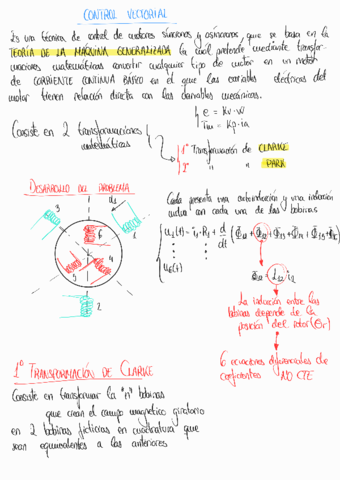 CONTROL VECTORIAL
Es una técnica de control de motores síncronos y asíncronos, que se basa en la
TEORÍA DE LA MÁQUINA GENERALIZADA la cual pretende mediante transfor-
maciones matemáticas convertir cualquier tipo de motor en un motor
de CORRIENTE CONTINUA BÁSICO en el que las variables eléctricas del
motor tienen relación directa con las variables mecánicas.
e = Kv · W
Tm = Kp · ia
Consiste en 2 transformaciones
matemáticas
1ª Transformación de CLARKE
2ª " " PARK
DESARROLLO DEL PROBLEMA
Cada presenta una autoinducción y una inducción
mutua con cada una de las bobinas
u1(t) = i1 · R1 + d/dt
u6(t)
La inducción entre las
bobinas depende de la
posición del rotor (θr)
6 ecuaciones diferenciales de
coeficientes NO CTE
3
1
6
5
4
2
1º TRANSFORMACIÓN DE CLARKE
Consiste en transformar la "n" bobinas
que crean el campo magnético giratorio
en 2 bobinas ficticias en cuadratura que
sean equivalentes a las anteriores